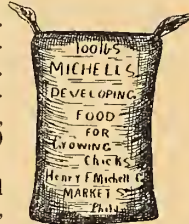 100lbs
MICHELLS
DEVELOPING
FOOD
FOR
GROWING
Chicks
Henry F Michell C
MARKET S
Phila